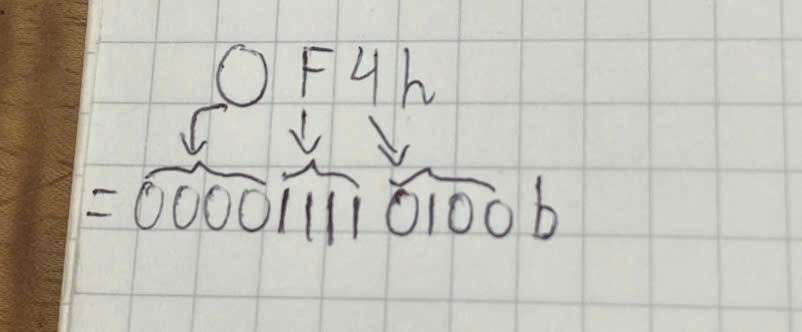 0F4h
= 0000 1111 0100 b